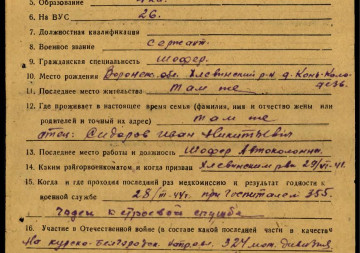 5. Образование
6. На ВУС 26.
7. Должностная квалификация
8. Военное звание Сержант.
9. Гражданская специальность Шофер.
10. Место рождения Воронеж. обл. Хлевинский р-н. д. Конь-Коло-
дезь.
11. Последнее место жительства там же
12. Где проживает в настоящее время семья (фамилия, имя и отчество жены или
родителей и точный их адрес) там же
отец: Сидоров Иван Никитьевич
13. Последнее место работы и должность Шофер Автоколонны.
14. Каким райгорвоенкоматом и когда призван Хлевинским рвк 29/VI-41.
15. Когда и где проходил последний раз медкомиссию и результат годности к
военной службе 28/III-44г. при госпитале 355.
годен к строевой службе
16. Участие в Отечественной войне (в составе какой последней части в качестве
На курско-Белгородск. направ. 324 мот. дивизия,